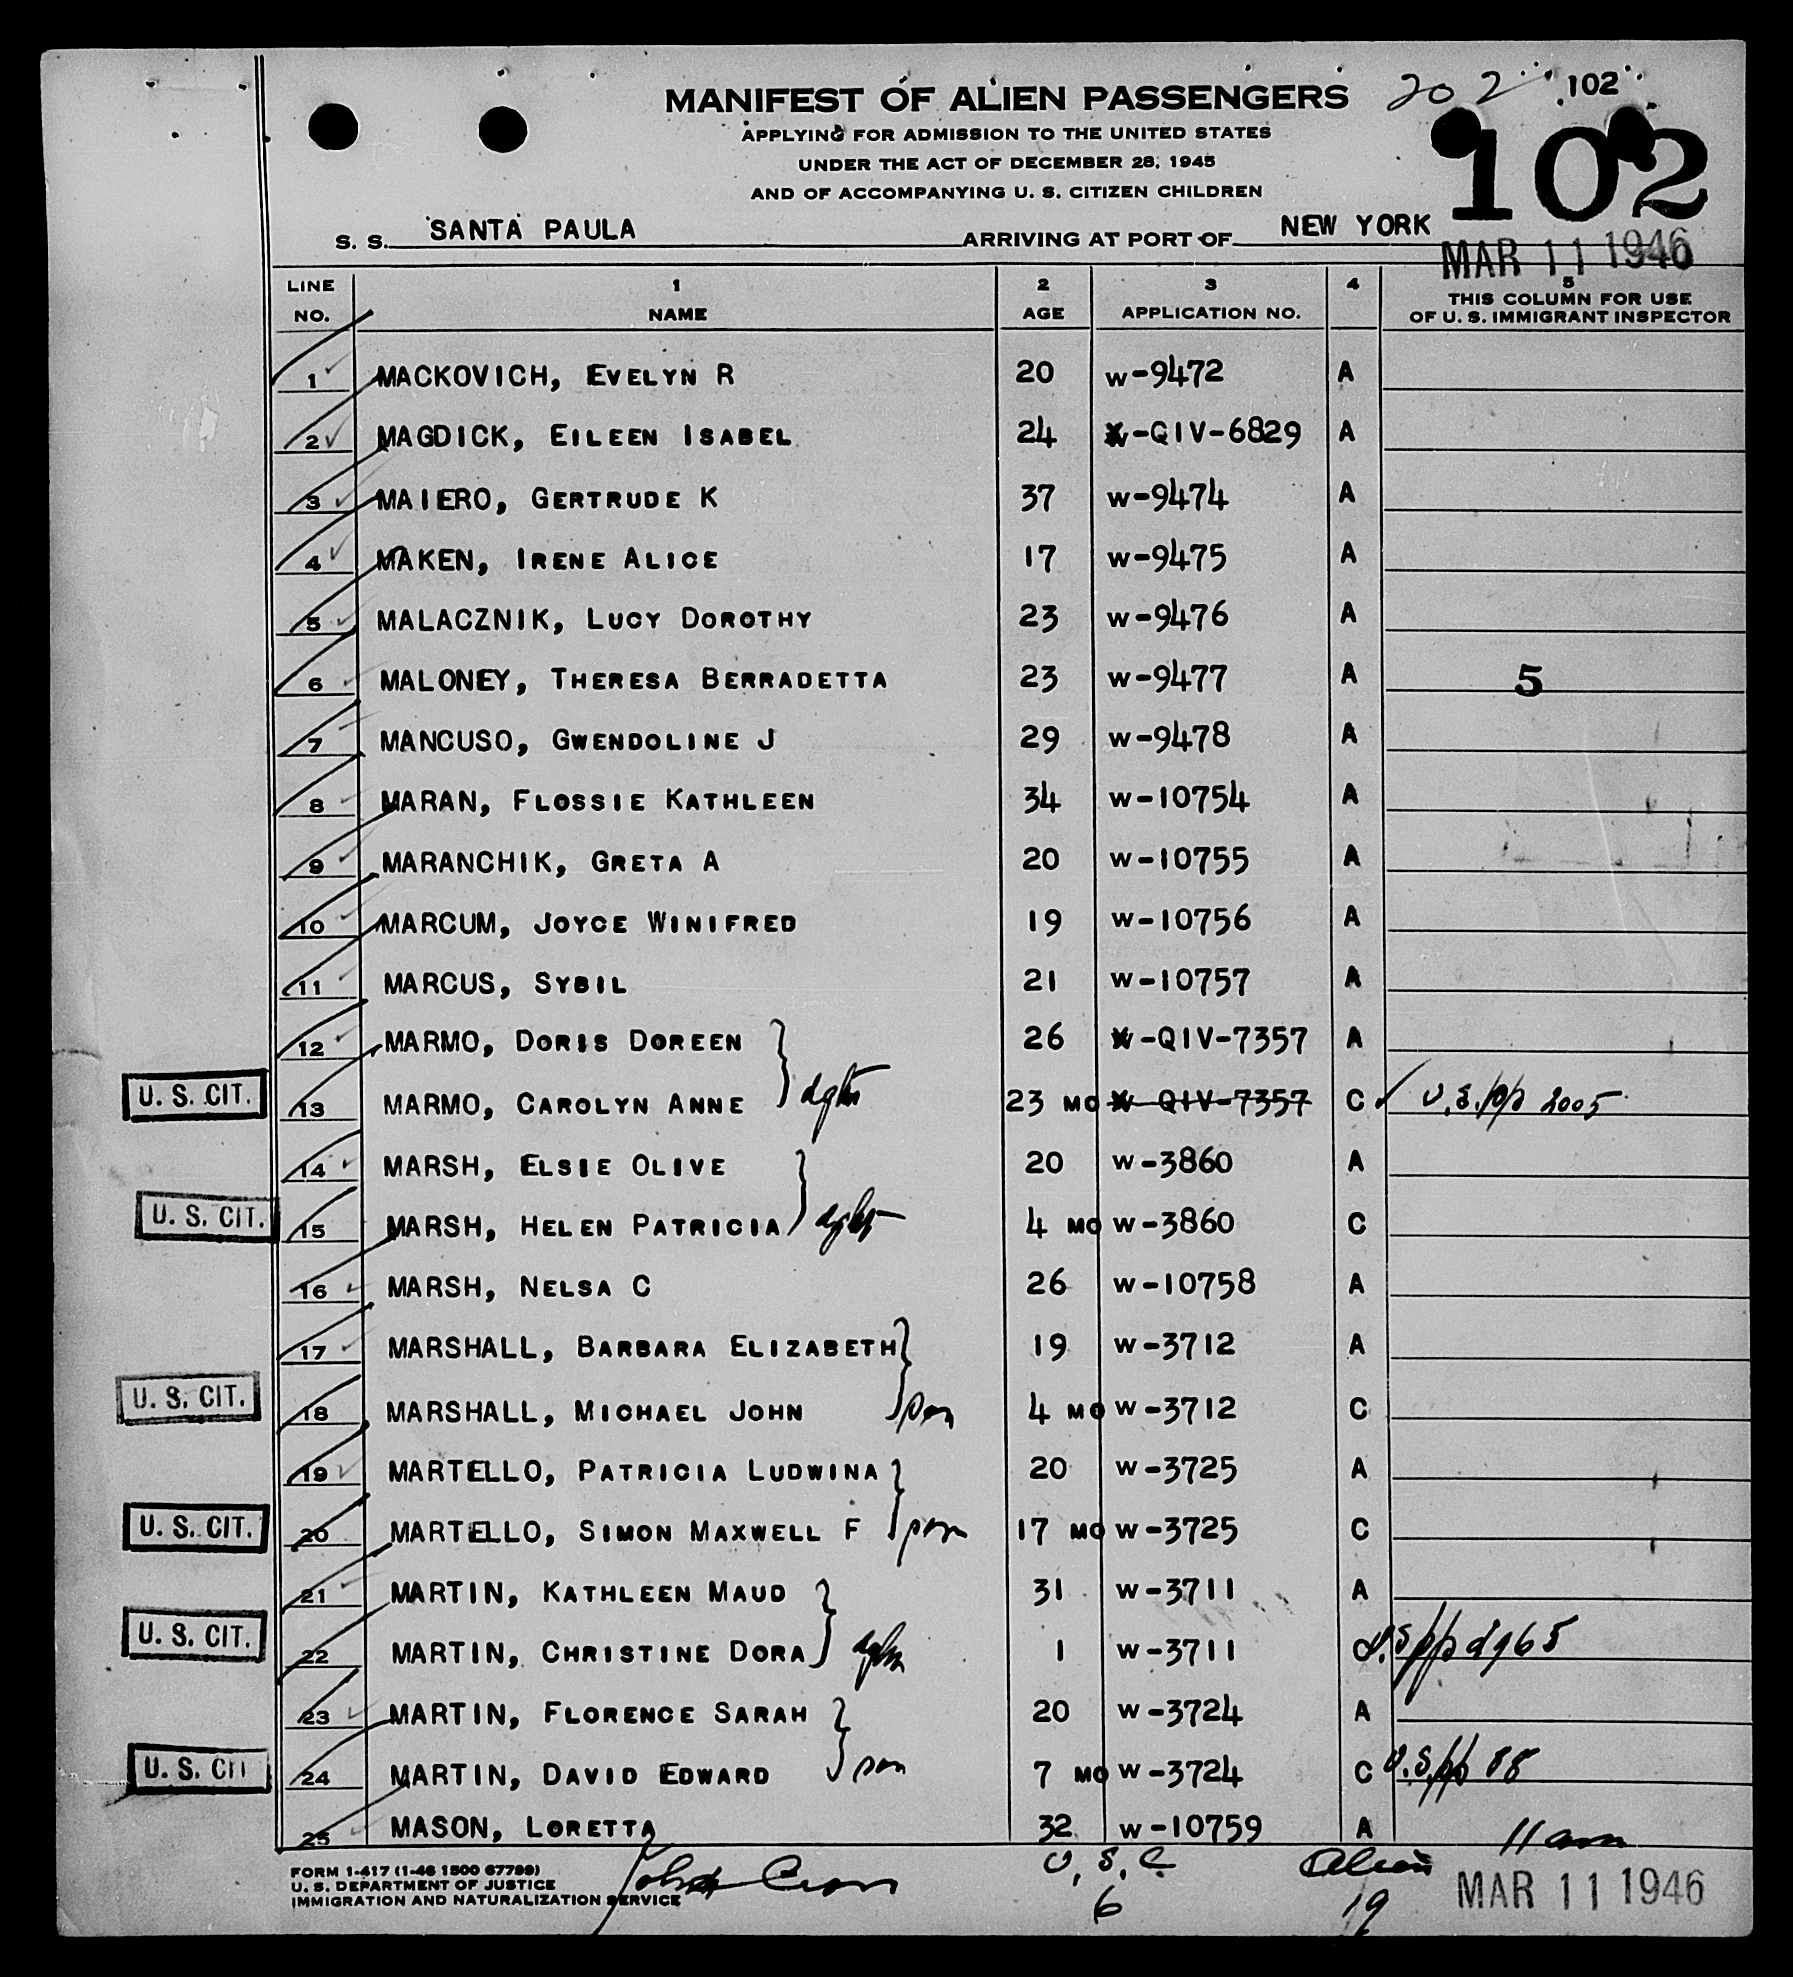 MANIFEST OF ALIEN PASSENGERS 202 102
APPLYING FOR ADMISSION TO THE UNITED STATES
UNDER THE ACT OF DECEMBER 28, 1945
AND OF ACCOMPANYING U. S. CITIZEN CHILDREN
102
S. S. SANTA PAULA ARRIVING AT PORT OF NEW YORK
MAR 11 1946
LINE NO. 1 NAME 2 AGE 3 APPLICATION NO. 4 5 THIS COLUMN FOR USE OF U. S. IMMIGRANT INSPECTOR
1 MACKOVICH, EVELYN R 20 W-9472 A
2 MAGDICK, EILEEN ISABEL 24 W-QIV-6829 A
3 MAIERO, GERTRUDE K 37 W-9474 A
4 MAKEN, IRENE ALICE 17 W-9475 A
5 MALACZNIK, LUCY DOROTHY 23 W-9476 A
6 MALONEY, THERESA BERRADETTA 23 W-9477 A 5
7 MANCUSO, GWENDOLINE J 29 W-9478 A
8 MARAN, FLOSSIE KATHLEEN 34 W-10754 A
9 MARANCHIK, GRETA A 20 W-10755 A
10 MARCUM, JOYCE WINIFRED 19 W-10756 A
11 MARCUS, SYBIL 21 W-10757 A
12 MARMO, DORIS DOREEN 26 W-QIV-7357 A
U. S. CIT. 13 MARMO, CAROLYN ANNE dghtr 23 MO W-QIV-7357 C U.S. pp 2005
14 MARSH, ELSIE OLIVE 20 W-3860 A
U. S. CIT. 15 MARSH, HELEN PATRICIA dghtr 4 MO W-3860 C
16 MARSH, NELSA C 26 W-10758 A
17 MARSHALL, BARBARA ELIZABETH 19 W-3712 A
U. S. CIT. 18 MARSHALL, MICHAEL JOHN son 4 MO W-3712 C
19 MARTELLO, PATRICIA LUDWINA 20 W-3725 A
U. S. CIT. 20 MARTELLO, SIMON MAXWELL F son 17 MO W-3725 C
21 MARTIN, KATHLEEN MAUD 31 W-3711 A
U. S. CIT. 22 MARTIN, CHRISTINE DORA dghtr 1 W-3711 C U.S. pp
23 MARTIN, FLORENCE SARAH 20 W-3724 A
U. S. CIT 24 MARTIN, DAVID EDWARD son 7 MO W-3724 C U.S. pp 88
25 MASON, LORETTA 32 W-10759 A 11 am
FORM I-417 (1-46 1500 67799)
U. S. DEPARTMENT OF JUSTICE
IMMIGRATION AND NATURALIZATION SERVICE
U. S. C. 6 Alien 19
MAR 11 1946